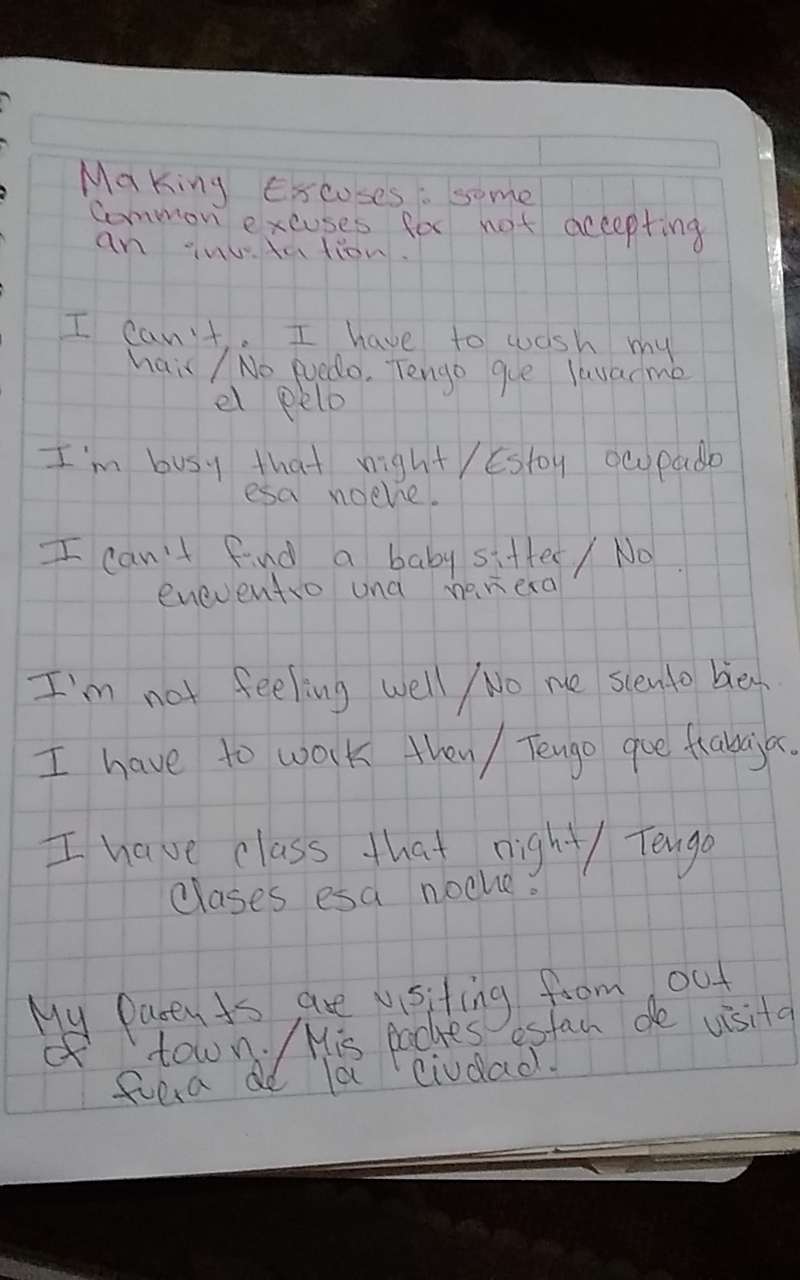 Making Excuses: some
Common excuses for not accepting
an invitation.
I can't. I have to wash my
hair / No puedo. Tengo que lavarme
el pelo
I'm busy that night / Estoy ocupado
esa noche.
I can't find a baby sitter / No
encuentro una niñera
I'm not feeling well / No me siento bien
I have to work then / Tengo que trabajar.
I have class that night / Tengo
Clases esa noche.
My parents are visiting from out
of town. / Mis padres estan de visita
fuera de la ciudad.